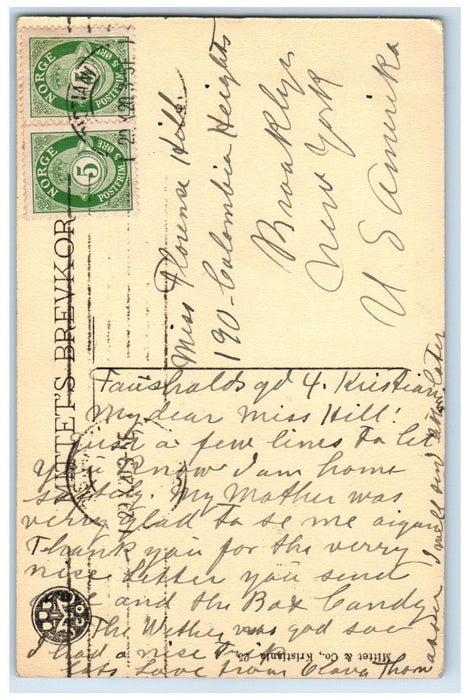 NORGE
5
5 ØRE
POSTFRIM.
NORGE
5
5 ØRE
POSTFRIM.
MITTET'S BREVKOR
Miss Florense Hill
190-Colombia Heights
Brooklyn
New York
U S Amerika
gd 4. Kristian
My dear Miss Hill!
just a few lines to let
you know I am home
safely. My Mother was
verry glad to se me aigan
Thank you for the verry
nice letter you send
me and the Box Candy
The Wether was god soe
I had a nice
love from Clara Thom
I will
later
Mittet & Co., Kristiania 25